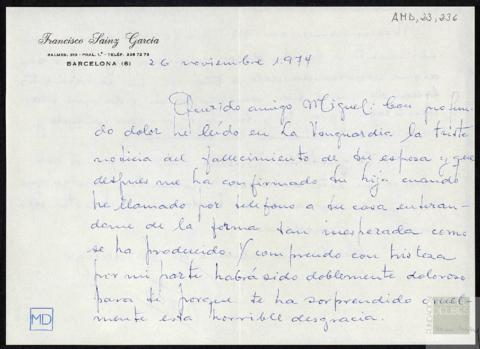 AMD, 23, 236
Francisco Sainz García
BALMES, 210 - PRAL. 1.ª - TELÉF. 228 72 73
BARCELONA (6)
26 noviembre 1974
Querido amigo Miguel: Con profun-
do dolor he leído en La Vanguardia la triste
noticia del fallecimiento de tu esposa y que
despues me ha confirmado tu hija cuando
he llamado por teléfono a tu casa enteran-
dome de la forma tan inesperada como
se ha producido. Y comprendo con tristeza
por mi parte habrá sido doblemente doloroso
para ti porque te ha sorprendido cruel-
mente esta horrible desgracia.
MD
FUNDACIÓN
DELIBES